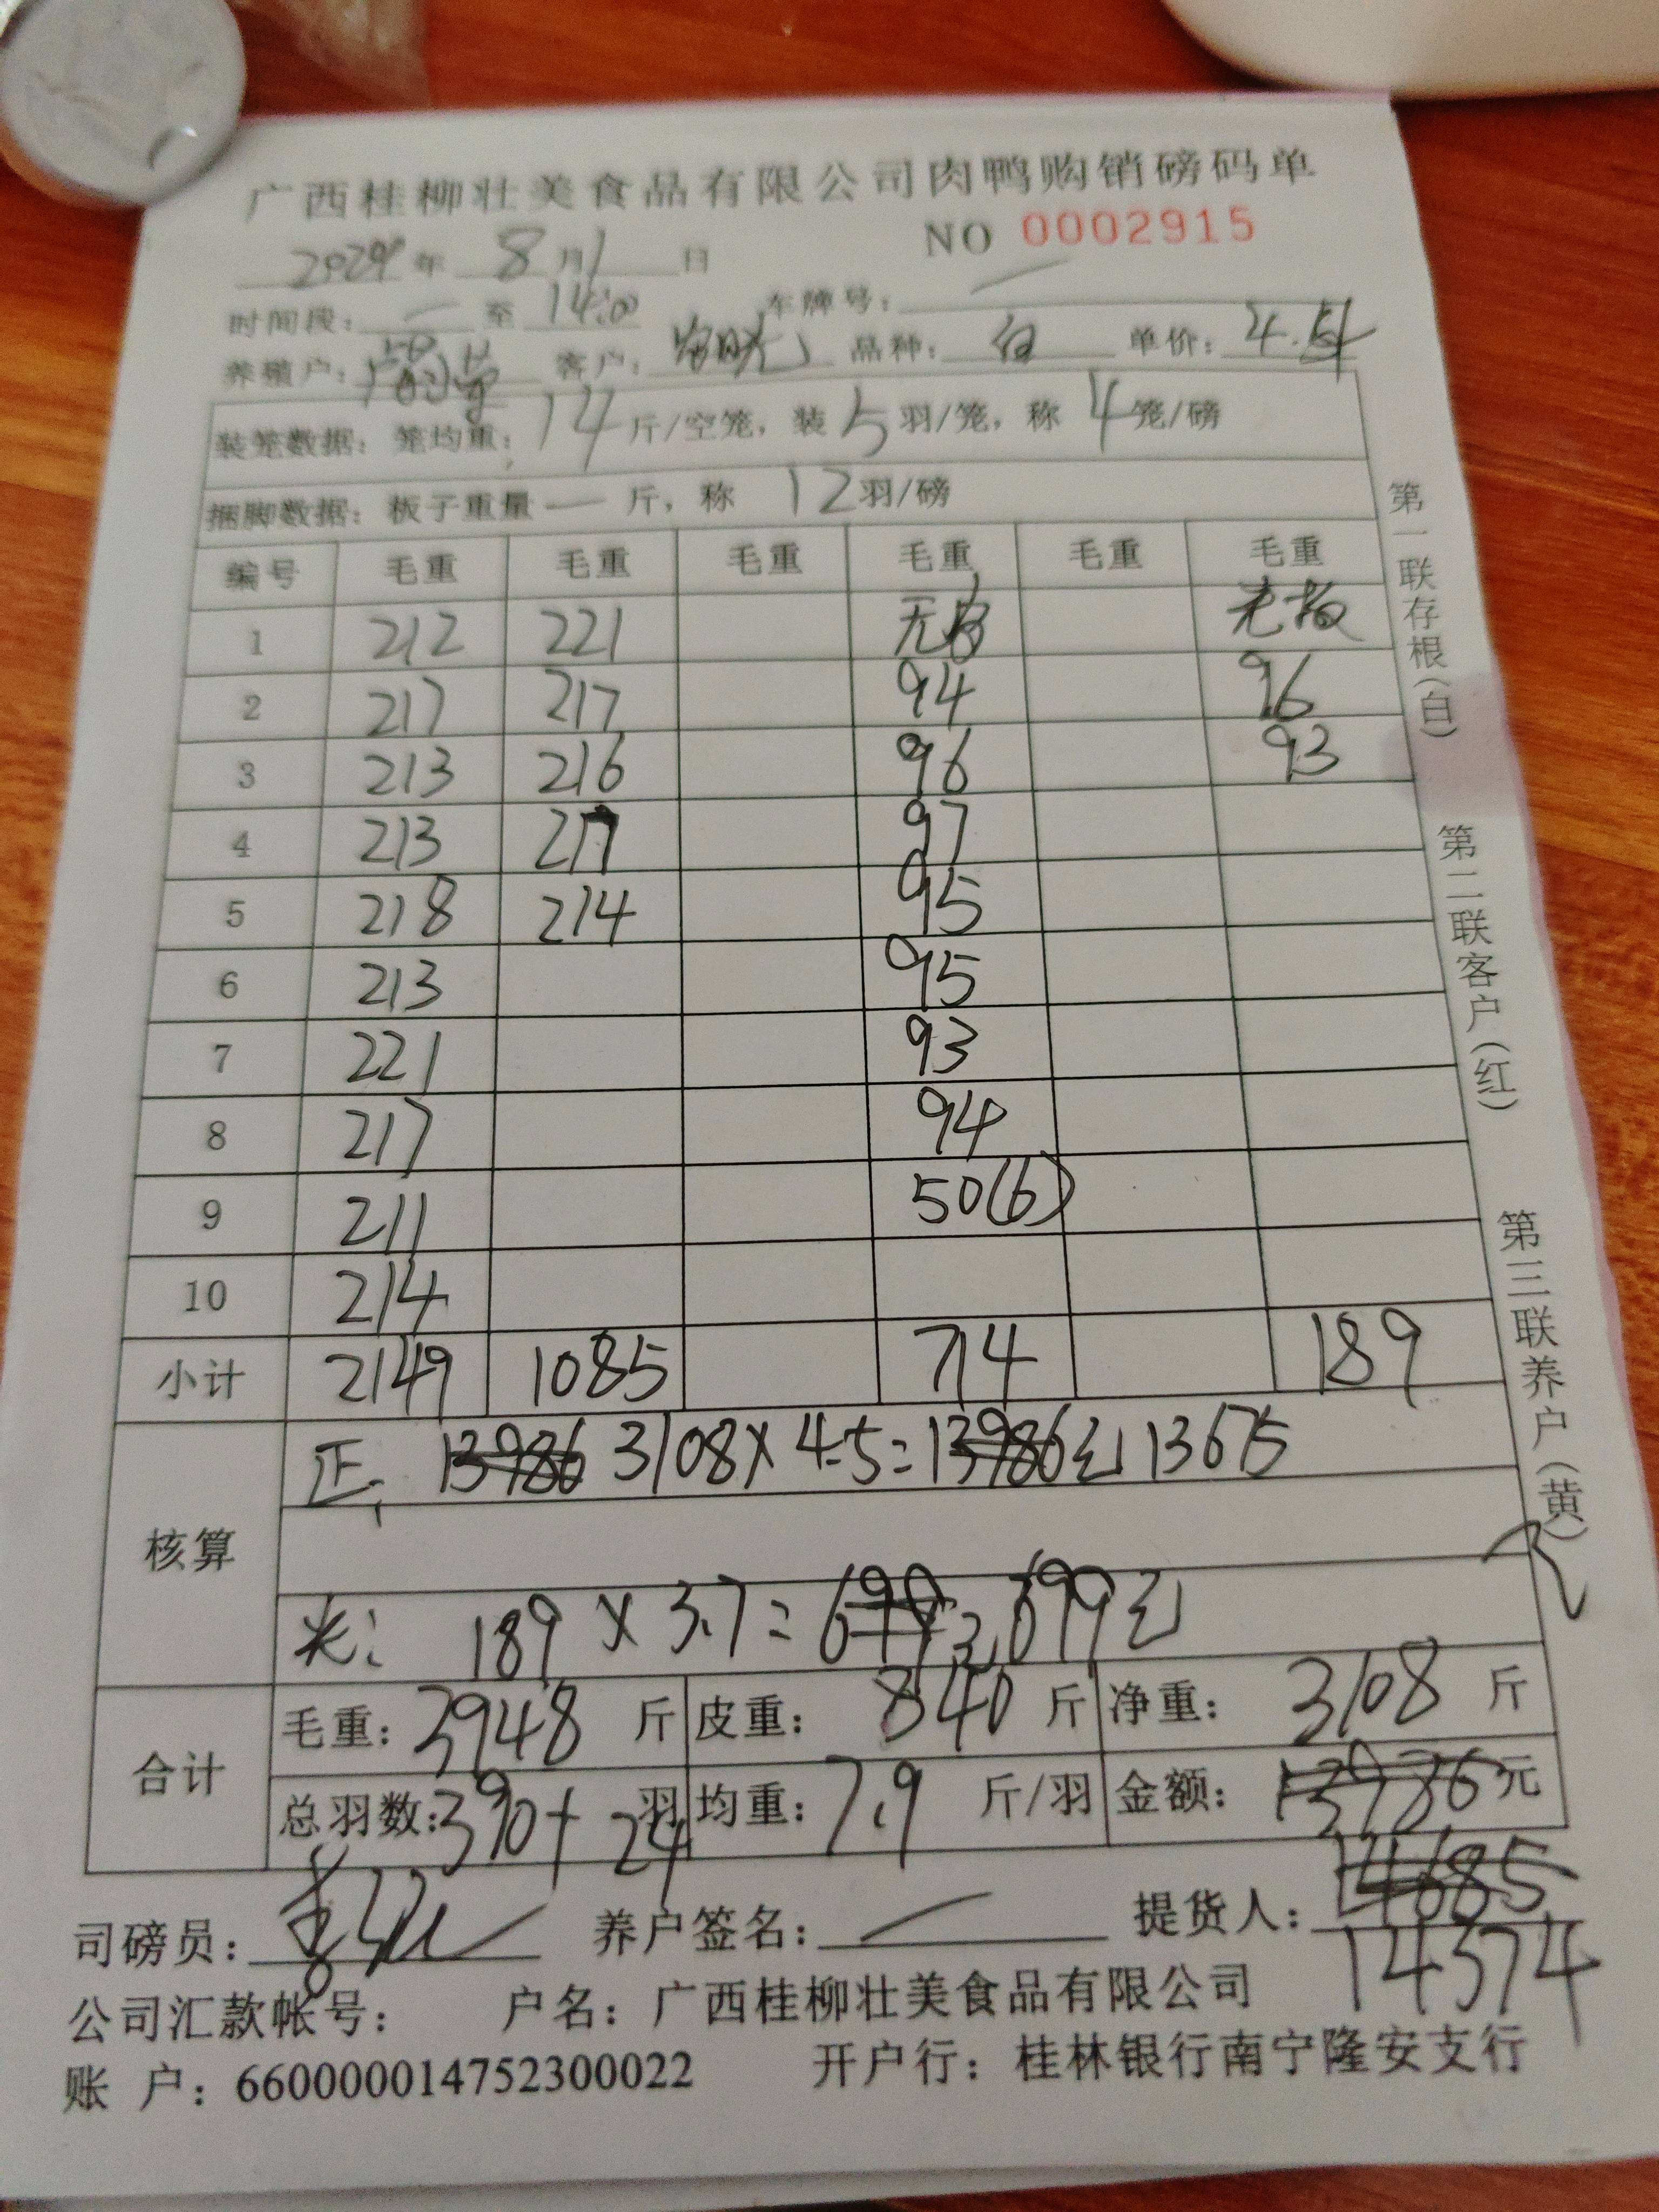 广西桂柳壮美食品有限公司肉鸭购销磅码单
NO 0002915
2024年 8月1日
时间段: 一 至 14:00 车牌号: 一
养殖户: 客户: 品种: 白 单价: 4.
装笼数据: 笼均重: 14 斤/空笼, 装 5 羽/笼, 称 4 笼/磅
捆脚数据: 板子重量 一 斤, 称 12 羽/磅
编号 毛重 毛重 毛重 毛重 毛重 毛重
1 212 221 无
2 217 217 94 96
3 213 216 96 93
4 213 217 97
5 218 214 95
6 213 95
7 221 93
8 217 94
9 211 50(6)
10 214
小计 2149 1085 714 189
核算
正: 13986 3108×4.5=13986元 13675
189×3.7=699元
合计
毛重: 3948 斤 皮重: 840 斤 净重: 3108 斤
总羽数: 390+24 羽 均重: 7.9 斤/羽 金额: 13986 元
14685
司磅员: 养户签名: 一 提货人:
14374
公司汇款帐号: 户名: 广西桂柳壮美食品有限公司
账 户: 660000014752300022 开户行: 桂林银行南宁隆安支行
第一联存根(白) 第二联客户(红) 第三联养户(黄)